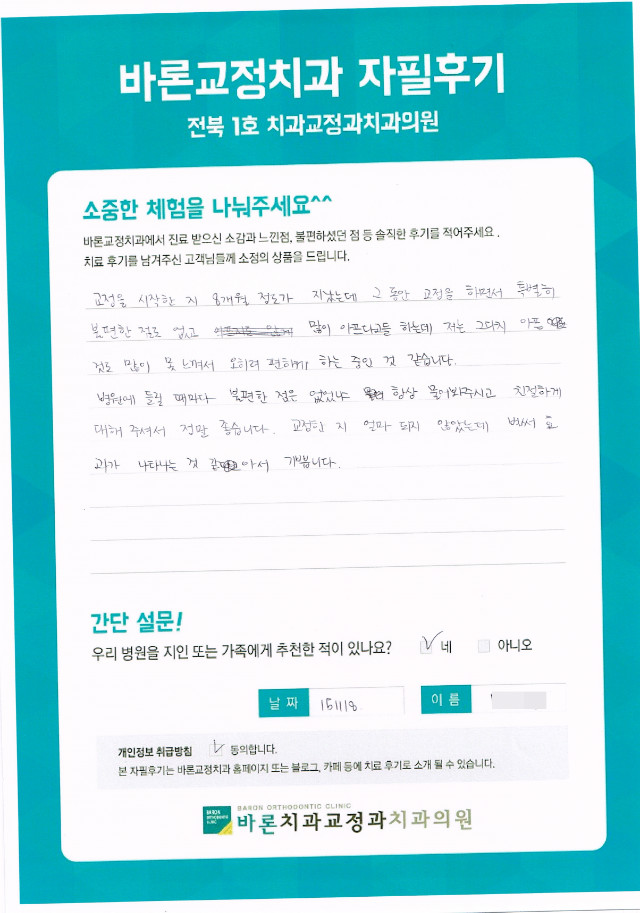 바론교정치과 자필후기
전북 1호 치과교정과치과의원
소중한 체험을 나눠주세요^^
바론교정치과에서 진료 받으신 소감과 느낀점, 불편하셨던 점 등 솔직한 후기를 적어주세요 .
치료 후기를 남겨주신 고객님들께 소정의 상품을 드립니다.
교정을 시작한 지 8개월 정도가 지났는데 그 동안 교정을 하면서 특별히
불편한 점도 없고 많이 아프다고들 하는데 저는 그다지 아픈
것도 많이 못 느껴서 오히려 편하게 하는 중인 것 같습니다.
병원에 들릴 때마다 불편한 점은 없었냐 항상 물어봐주시고 친절하게
대해 주셔서 정말 좋습니다. 교정한 지 얼마 되지 않았는데 벌써 효
과가 나타나는 것 같아서 기쁩니다.
간단 설문!
우리 병원을 지인 또는 가족에게 추천한 적이 있나요? 네 아니오
날 짜 151118. 이 름
개인정보 취급방침 동의합니다.
본 자필후기는 바론교정치과 홈페이지 또는 블로그, 카페 등에 치료 후기로 소개 될 수 있습니다.
BARON ORTHODONTIC CLINIC
바론치과교정과치과의원